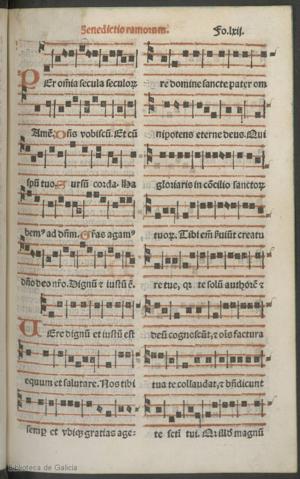 Benedictio ramorum. Fo. lxij.
PEr om̃ia secula seculoꝝ
Amē. Dñs vobiscū. Et cū
spũ tuo. Sursũ corda. Ha
bem⁹ ad dñm. Gr̃as agam⁹
dño deo nr̃o. Dignũ ⁊ iustũ ē.
VEre dignũ et iustũ est
equum et salutare. Nos tibi
semꝑ et vbiqꝫ gratias age-
re domine sancte pater om
nipotens eterne deus. Qui
gloriaris in cōcilio sanctoꝝ
tuoꝝ. Tibi em̃ ẜuiũt creatu
re tue, qꝛ te solũ authorē ⁊
deũ cognoscũt, ⁊ oĩs factura
tua te collaudat, ⁊ bñdicunt
te scti tui. Qr̃ illd magnũ
Biblioteca de Galicia